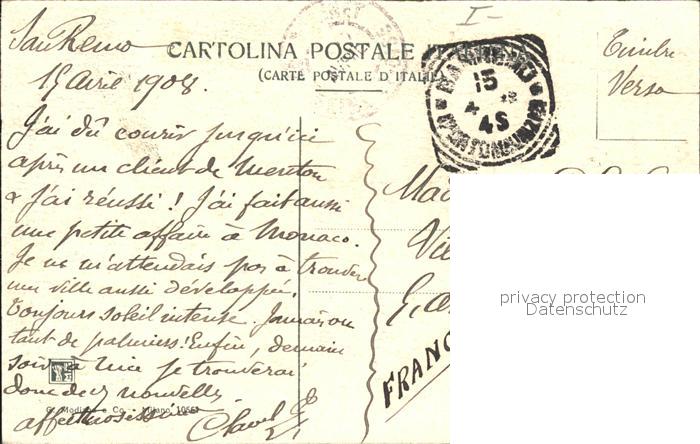 San Remo
15 Avril 1908.
CARTOLINA POSTALE
(CARTE POSTALE D'ITALIE)
I-
15
4
4S
Timbre
Verso
J'ai dû courir jusqu'ici
après un client de Menton
& j'ai réussi ! J'ai fait aussi
une petite affaire à Monaco.
Je ne m'attendais pas à trouver
une ville aussi développée.
Toujours soleil intense. Jamais vu
tant de palmiers! Enfin, demain
soir à Nice je trouverai
donc de nouvelles
affect
G. Modiano e Co. - Milano
Mad
Vil
FRANC
privacy protection
Datenschutz